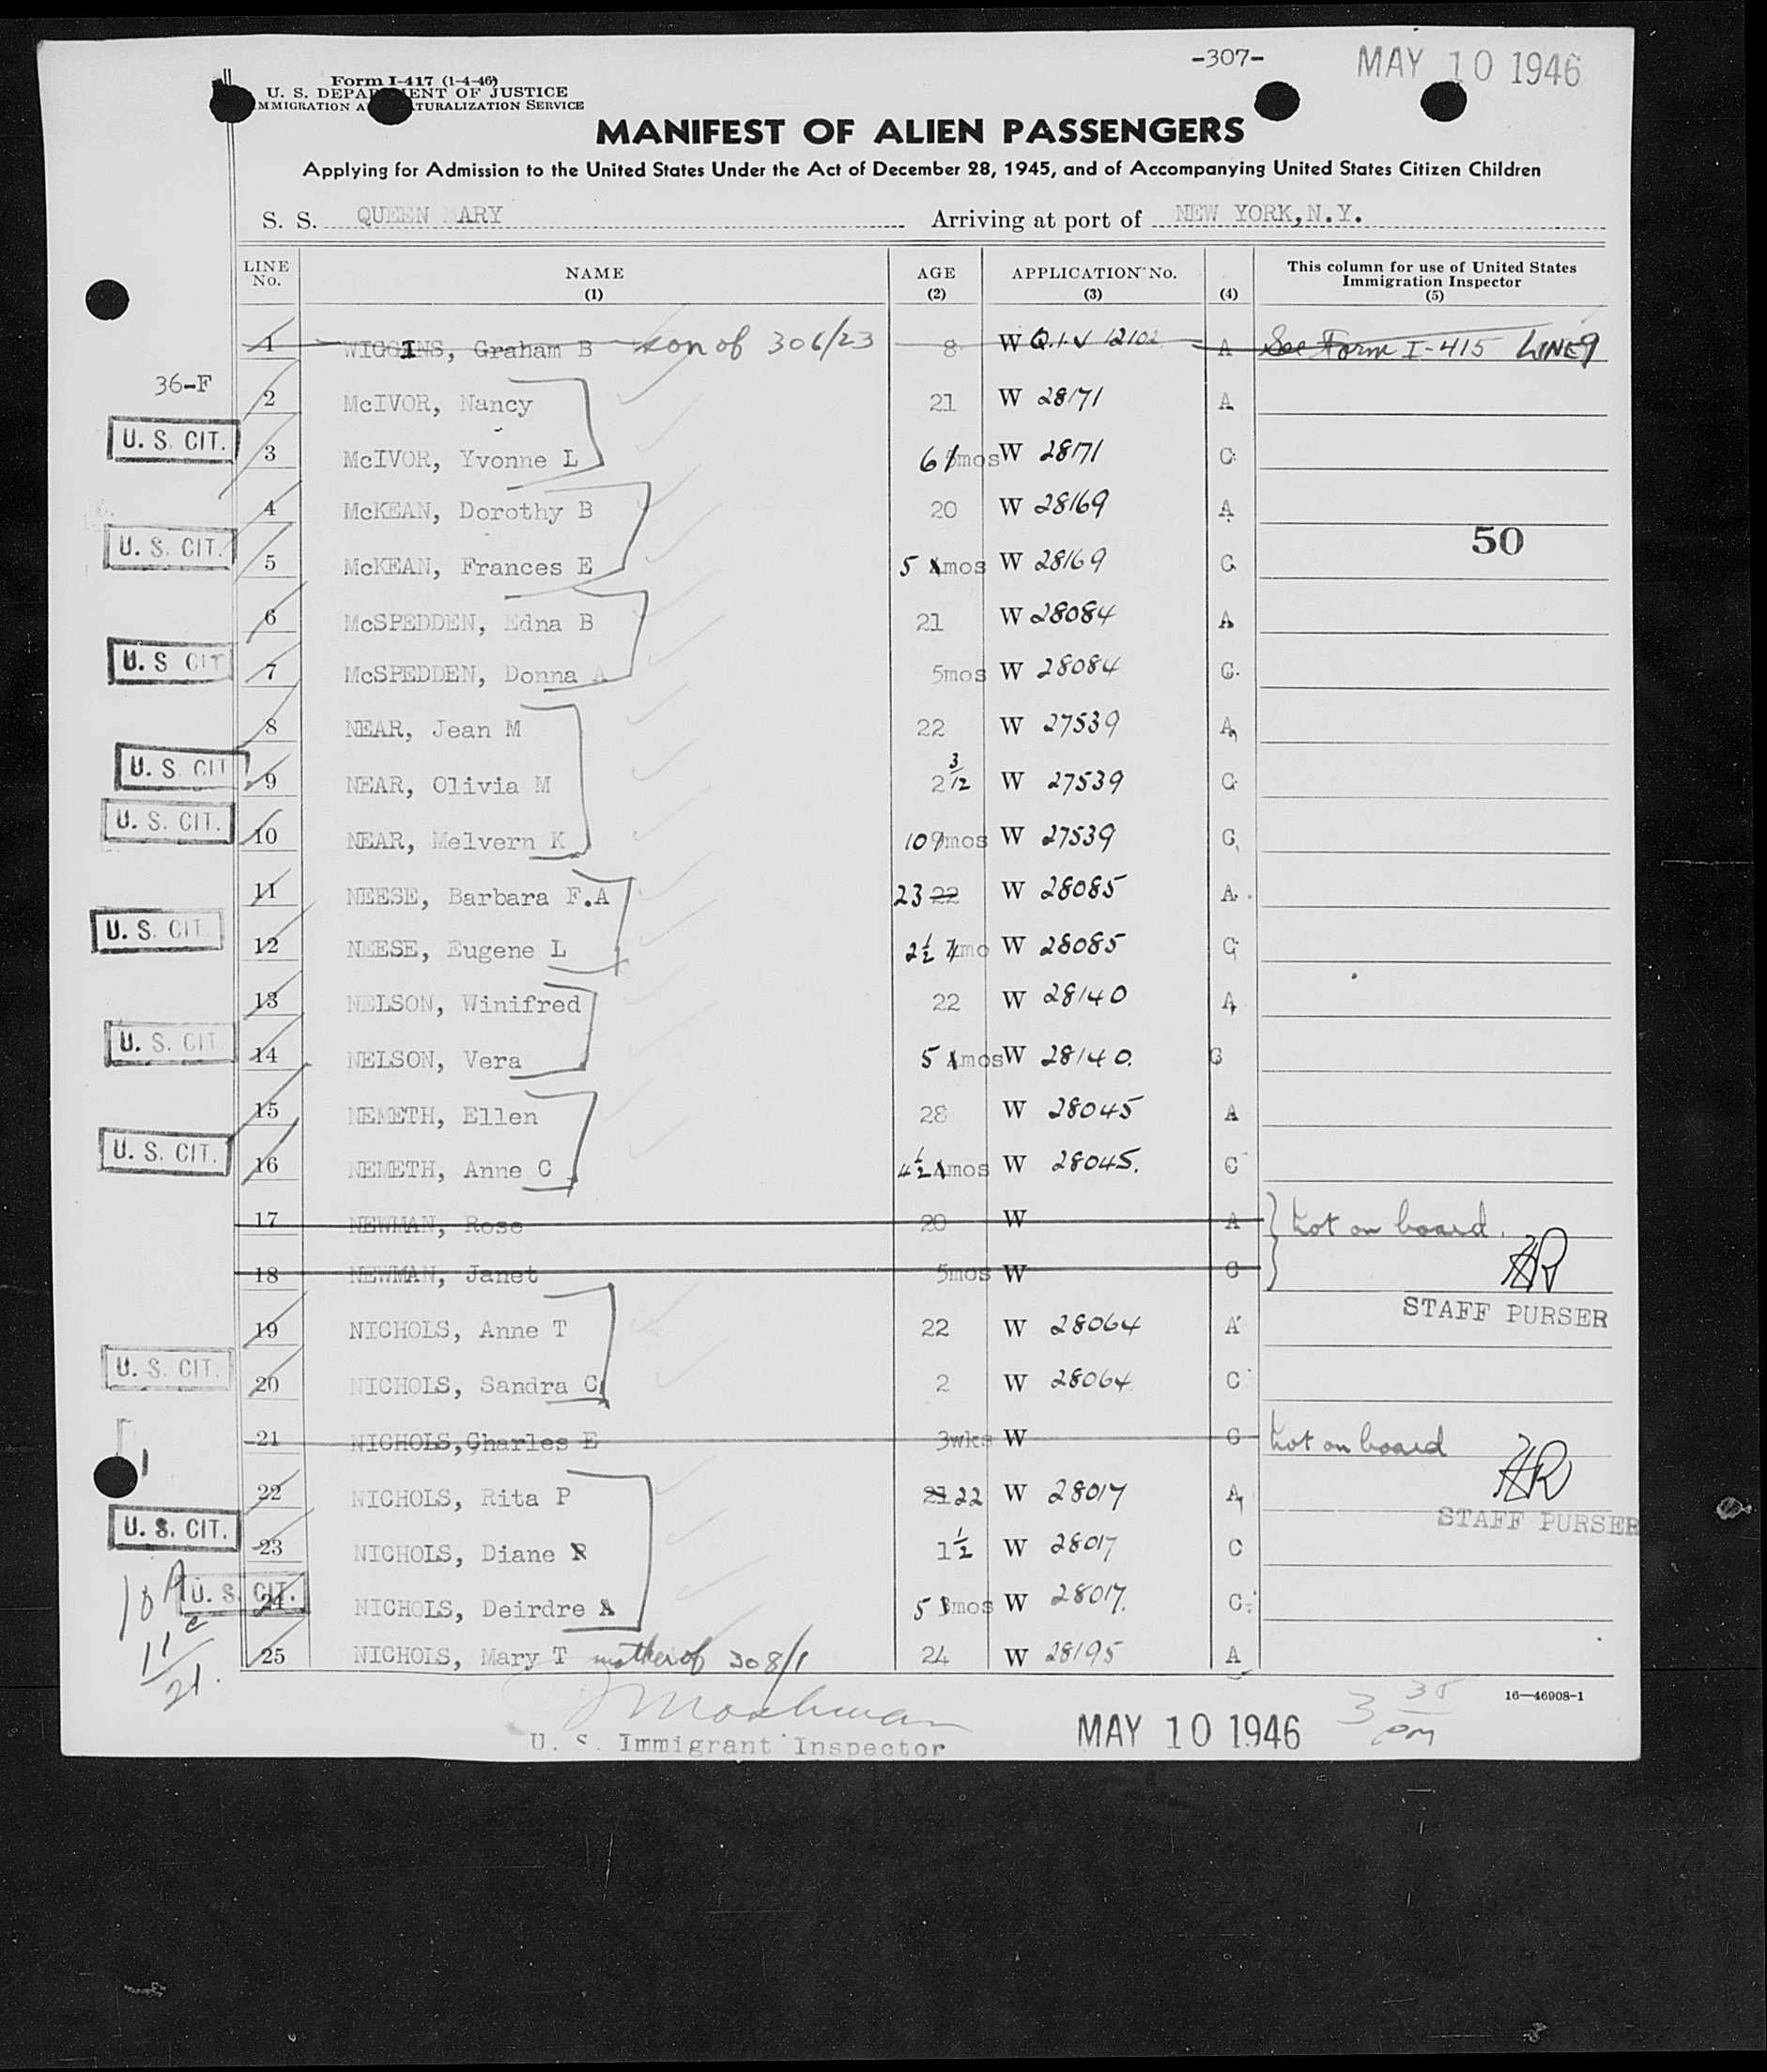 -307-
MAY 10 1946
Form I-417 (1-4-46)
U. S. DEPARTMENT OF JUSTICE
IMMIGRATION AND NATURALIZATION SERVICE
MANIFEST OF ALIEN PASSENGERS
Applying for Admission to the United States Under the Act of December 28, 1945, and of Accompanying United States Citizen Children
S. S. QUEEN MARY Arriving at port of NEW YORK, N.Y.
LINE No. NAME (1) AGE (2) APPLICATION No. (3) (4) This column for use of United States Immigration Inspector (5)
1 WIGGINS, Graham B son of 306/23 8 W Q.I.V 12102 A See Form I-415 LINE 9
36-F
2 McIVOR, Nancy 21 W 28171 A
U. S. CIT. 3 McIVOR, Yvonne L 6 mos W 28171 C
4 McKEAN, Dorothy B 20 W 28169 A
50
U. S. CIT. 5 McKEAN, Frances E 5 mos W 28169 C
6 McSPEDDEN, Edna B 21 W 28084 A
U. S. CIT 7 McSPEDDEN, Donna A 5mos W 28084 C
8 NEAR, Jean M 22 W 27539 A
U. S. CIT 9 NEAR, Olivia M 2 3/12 W 27539 C
U. S. CIT. 10 NEAR, Melvern K 10 9mos W 27539 C
11 NEESE, Barbara F.A 23 22 W 28085 A
U. S. CIT. 12 NEESE, Eugene L 2½ mo W 28085 C
13 NELSON, Winifred 22 W 28140 A
U. S. CIT 14 NELSON, Vera 5 4mos W 28140. C
15 NEMETH, Ellen 28 W 28045 A
U. S. CIT. 16 NEMETH, Anne C 4½ mos W 28045. C
17 NEWMAN, Rose 20 W A } Not on board.
18 NEWMAN, Janet 5mos W C }
STAFF PURSER
19 NICHOLS, Anne T 22 W 28064 A
U. S. CIT. 20 NICHOLS, Sandra C 2 W 28064 C
21 NICHOLS, Charles E 3wks W C Not on board
22 NICHOLS, Rita P 21 22 W 28017 A
STAFF PURSER
U. S. CIT. 23 NICHOLS, Diane R 1½ W 28017 C
U. S. CIT. 24 NICHOLS, Deirdre A 5 3mos W 28017. C
25 NICHOLS, Mary T mother of 308/1 24 W 28195 A
10 A
11 C
21.
16—46908-1
U. S. Immigrant Inspector
MAY 10 1946
3 38 pm